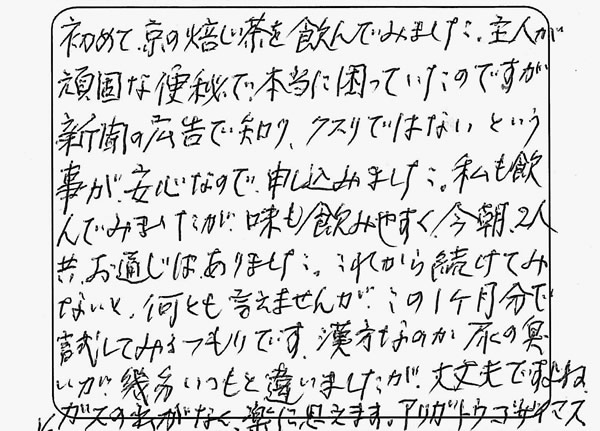 初めて、京の焙じ茶を飲んでみました。主人が
頑固な便秘で、本当に困っていたのですが
新聞の広告で知り、クスリではないという
事が、安心なので、申し込みました。私も飲
んでみましたが、味も飲みやすく、今朝、2人
共、お通じはありました。これから続けてみ
ないと、何とも言えませんが、この1ヶ月分で
試してみるつもりです。漢方なのか尿の臭
いが、幾分いつもと違いましたが、大丈夫ですよね。
ガスの臭がなく、楽に思えます。アリガトウゴザイマス